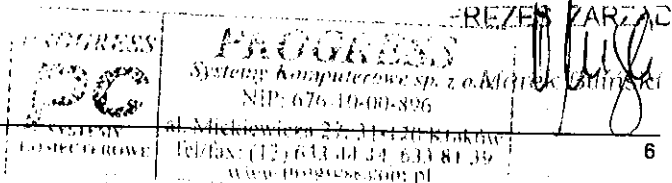 PREZES ZARZĄD
PROGRESS
PC
SYSTEMY
KOMPUTEROWE
PROGRESS
Systemy Komputerowe sp. z o.
Marek
NIP: 676-10-00-896
al. Mickiewicza 27, 31-120 Kraków
Tel/fax: (12) 633 44 34, 633 81 39
6